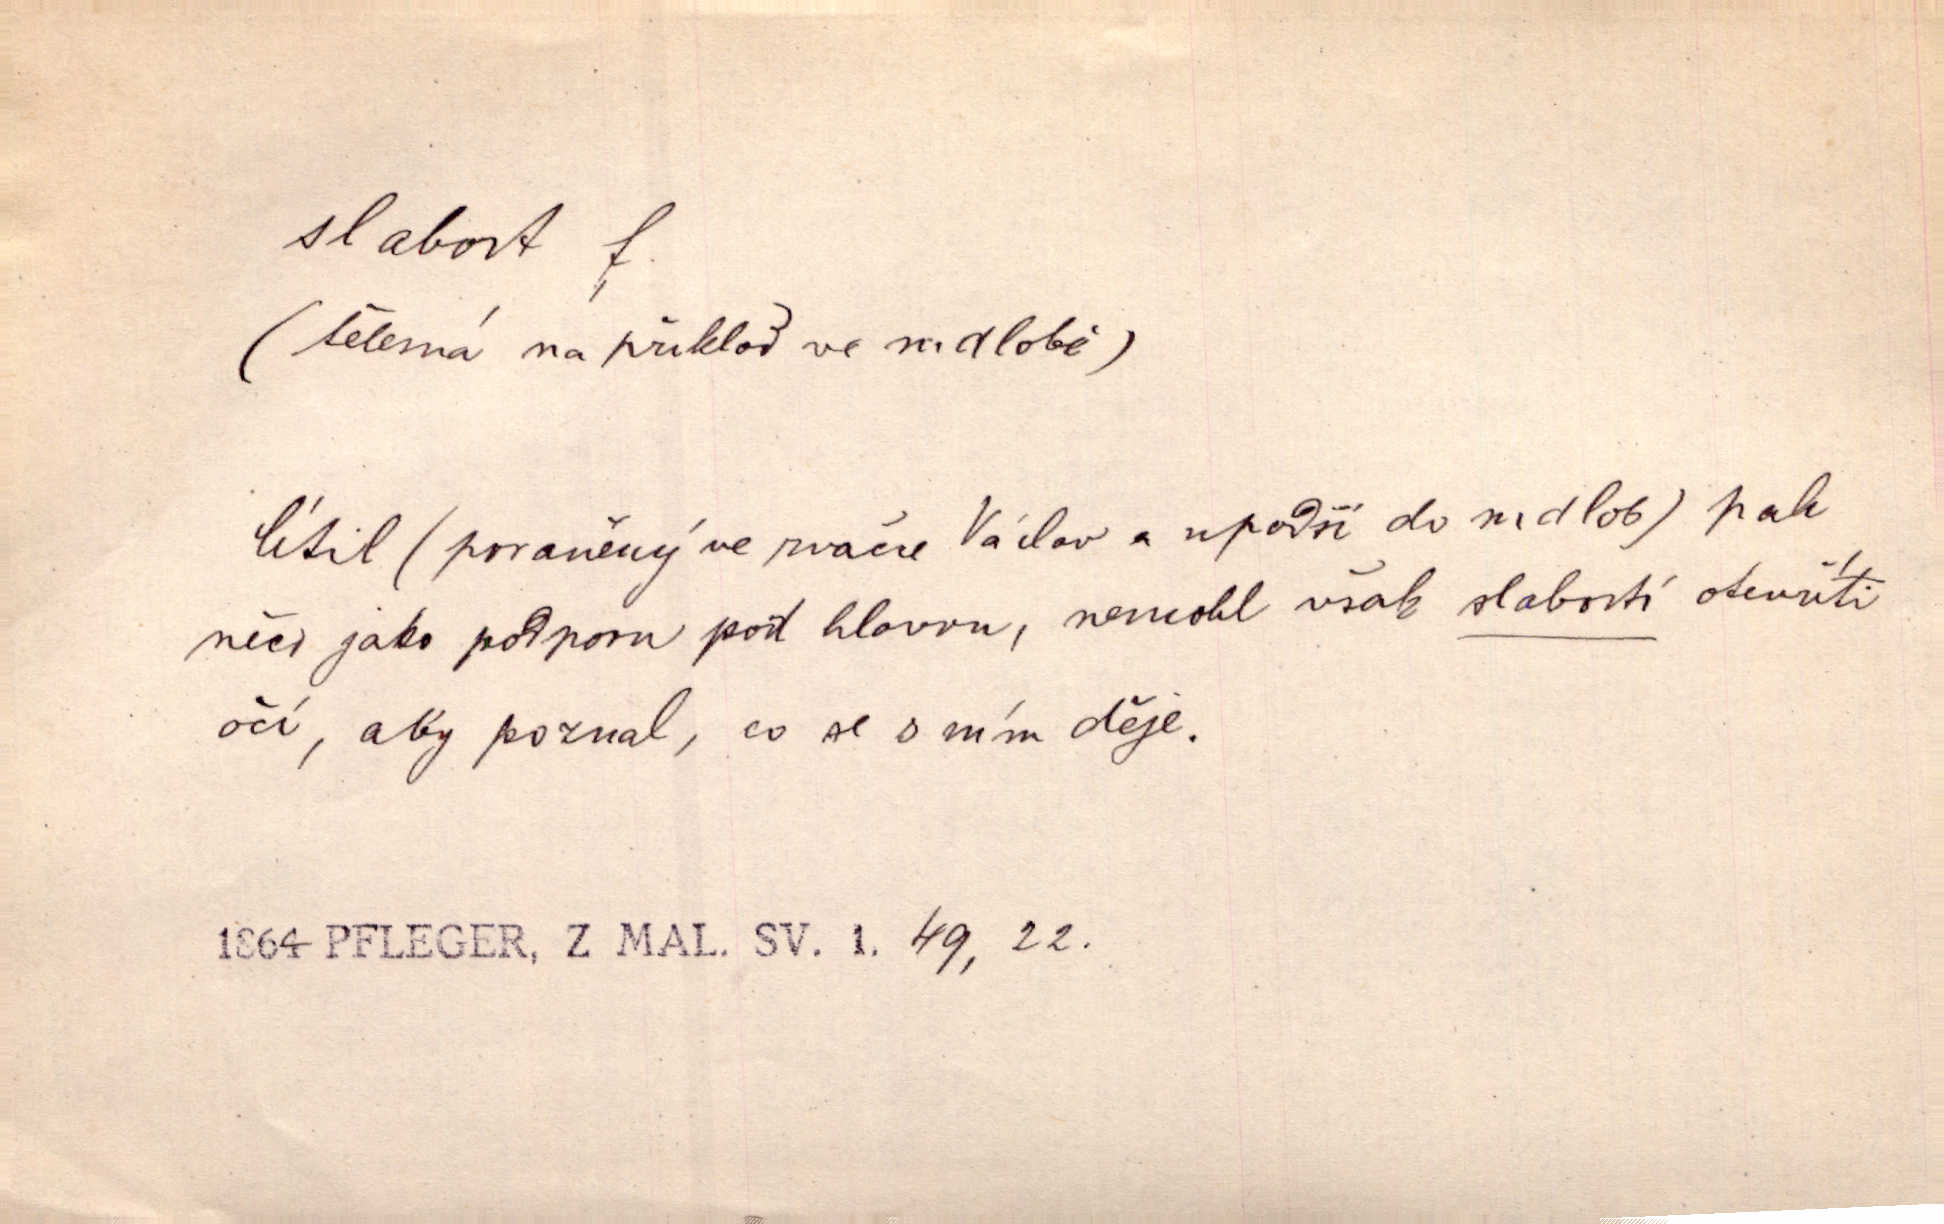 slabost f.
(tělesná na příklad ve mdlobě)
Cítil (poraněný ve rvačce Václav a upadší do mdlob) pak
něco jako podporu pod hlavou, nemohl však slabostí otevříti
očí, aby poznal, co se s ním děje.
1864 PFLEGER, Z MAL. SV. 1. 49, 22.